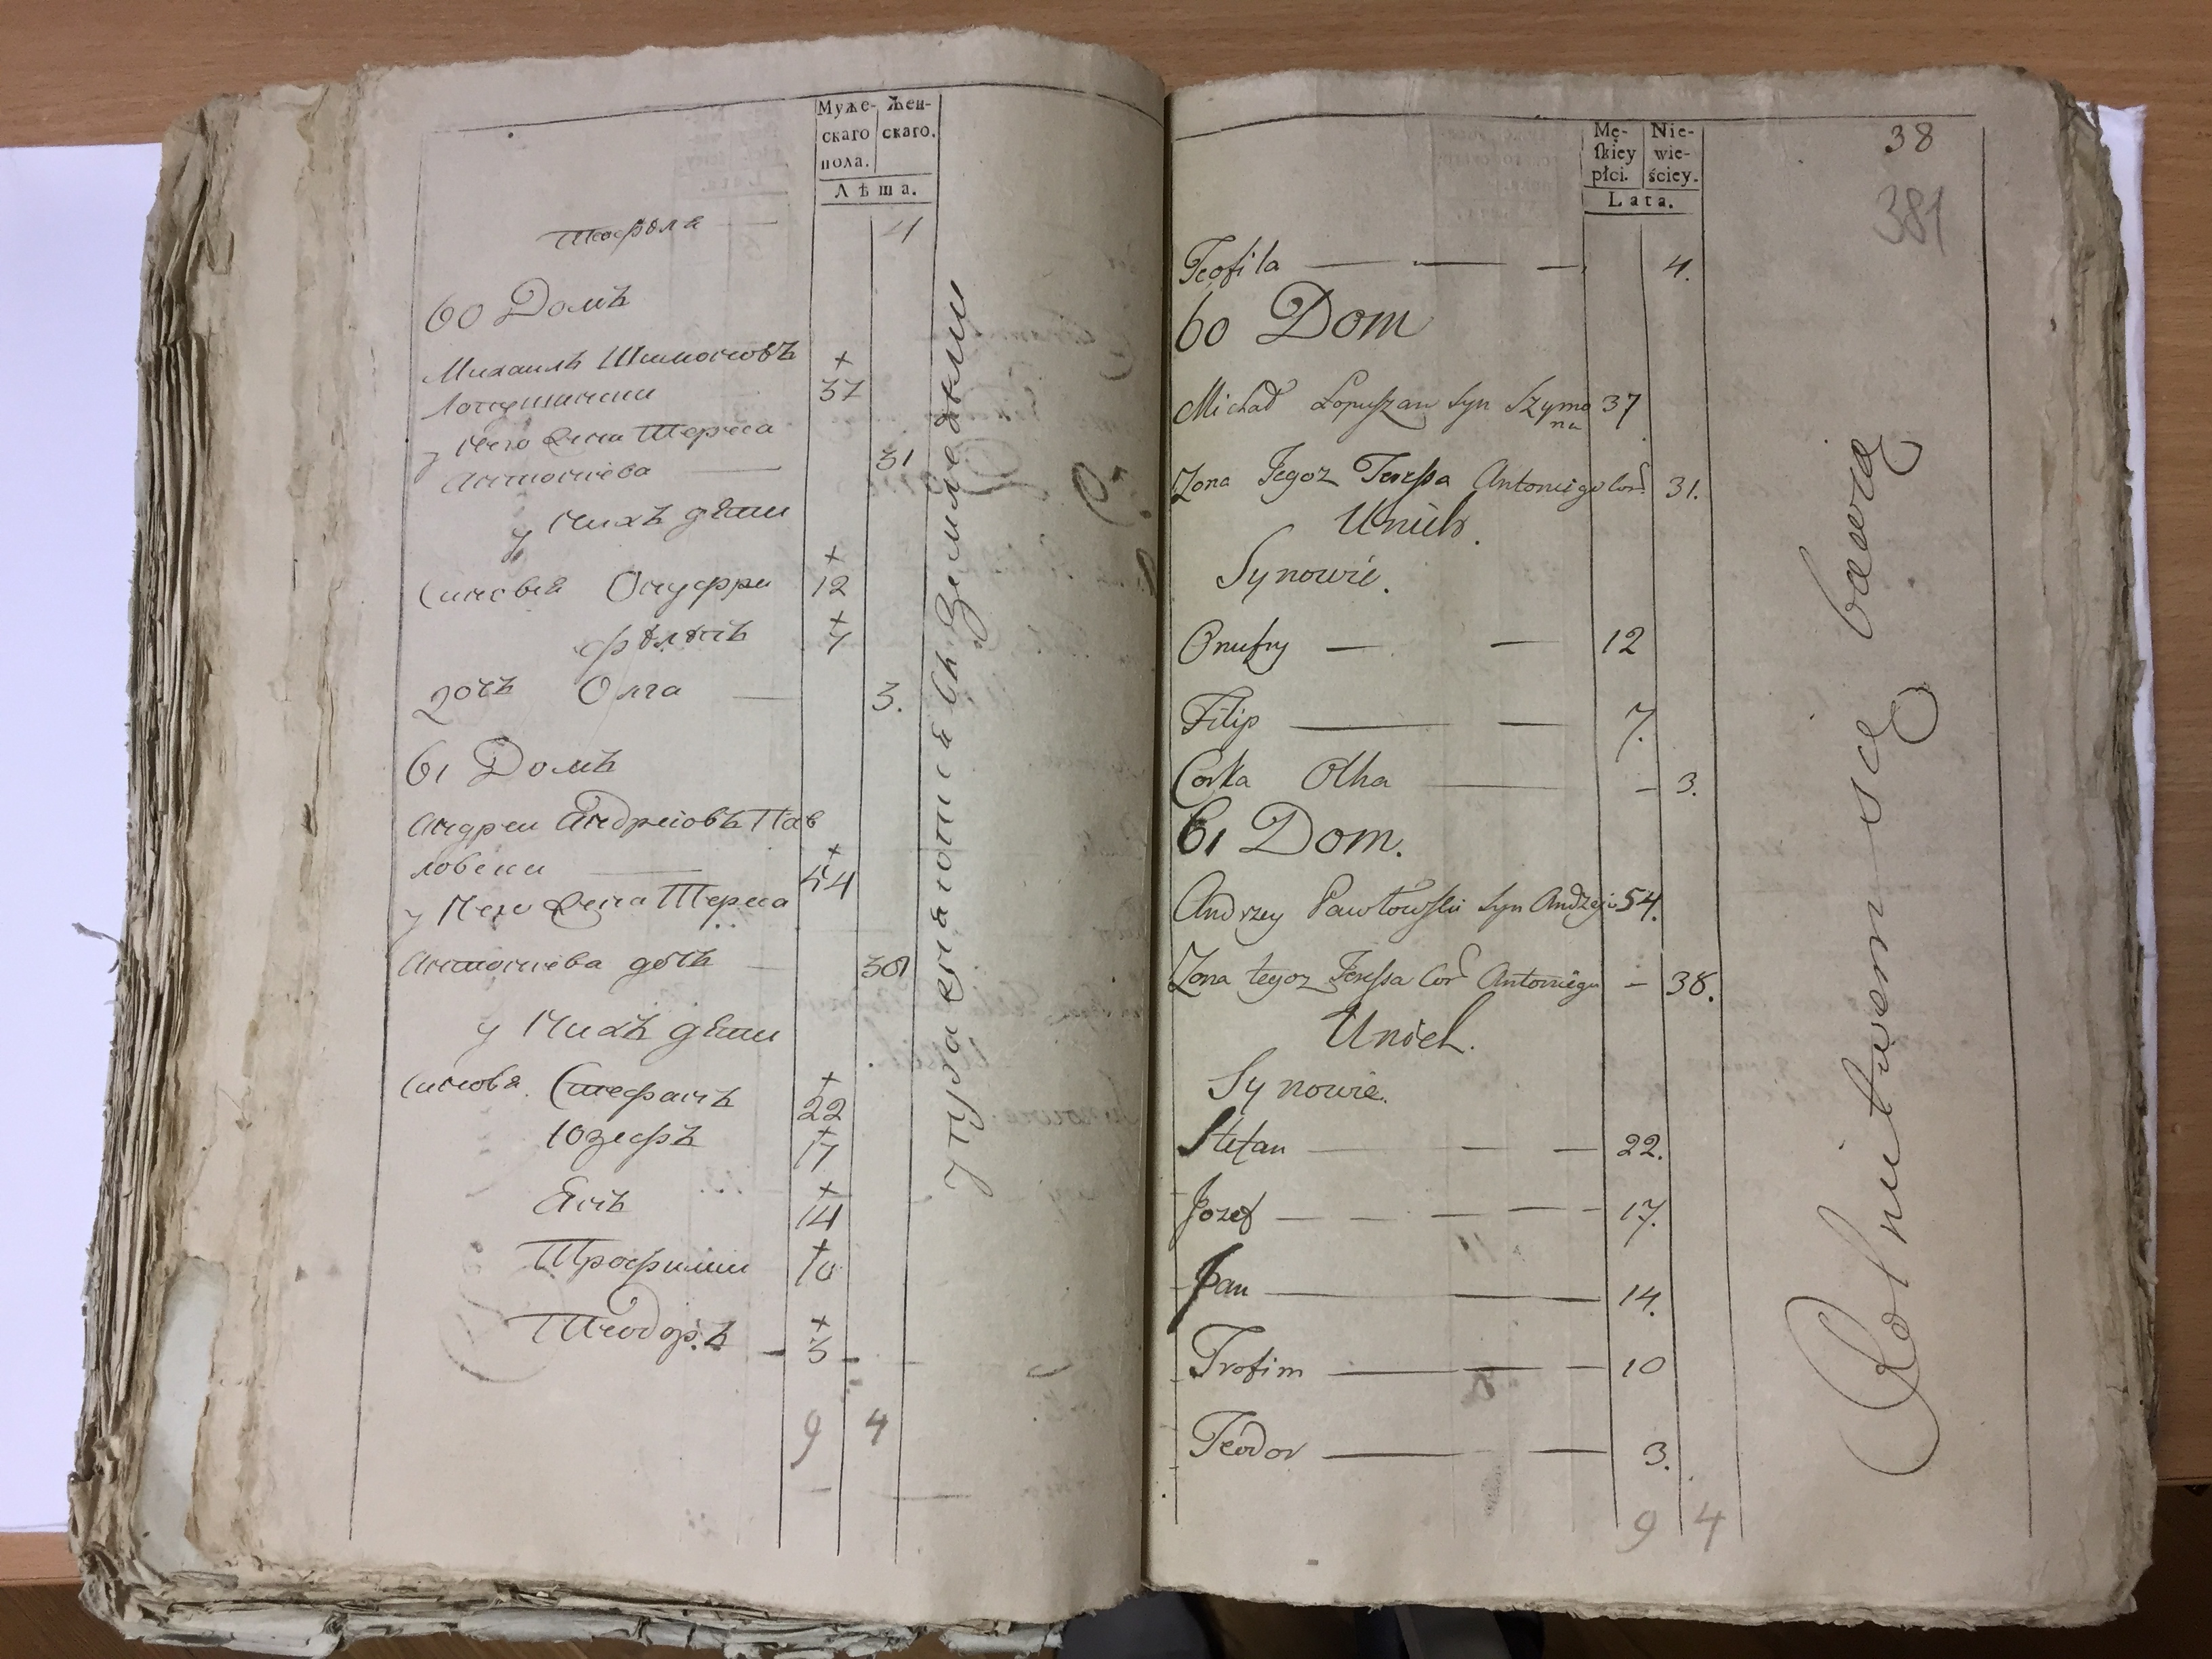 Муже- Жен-
скаго скаго.
пола.
Лѣта.
Теофѣла 4
60 Домъ
Михаилъ Шимоновъ +
Лопушански 37
у него жена Тереса
Антонѣева 31
у нихъ дѣти
синовя Онуфри + 12
Фѣлѣпъ + 7
дочъ Олга 3.
61 Домъ
Андреи Андреіовъ Пав
ловски + 54
у Него жена Тереса
Антонѣева дочъ 38
у Нихъ дѣти
синовя Стефанъ + 22
Юзефъ + 17
Янъ + 14
Трофими + 10
Теодоръ + 3
9 4
земледелии
Mę- Nie-
skiey wie-
płci. ściey.
Lata.
38
381
Teofila 4.
60 Dom
Michał Łopuszan Syn Szymo 37
na
Zona Jegoz Teressa Antoniego Cor 31.
Unich.
Synowie.
Onufry 12
Filip 7.
Corka Olha 3.
61 Dom.
Andrzey Pawłowski Syn Andzeia 54.
Zona tegoz Teressa Cor Antoniego 38.
Unich.
Synowie.
Stefan 22.
Jozef 17.
Jan 14.
Trofim 10
Teodor 3.
9 4
Rolnictwem się bawią